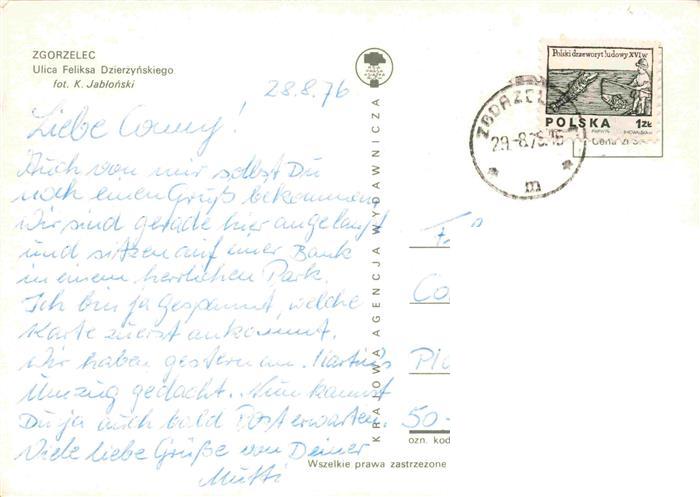 ZGORZELEC
Ulica Feliksa Dzierżyńskiego
fot. K. Jabłoński
28.8.76
Liebe Conny!
Auch von mir sollst Du
noch einen Gruß bekommen.
Wir sind gerade hier angelangt
und sitzen auf einer Bank
in einem herrlichen Park.
Ich bin ja gespannt, welche
Karte zuerst ankommt.
Wir haben gestern an Martins
Umzug gedacht. Nun kannst
Du ja auch bald Post erwarten.
Viele liebe Grüße von Deiner
Mutti
KRAJOWA AGENCJA WYDAWNICZA
Polski drzeworyt ludowy XVI w
POLSKA 1ZŁ
ZGORZELEC
29.-8.76.16
m
Cena zł
Co
50-
ozn. kod
Wszelkie prawa zastrzeżone